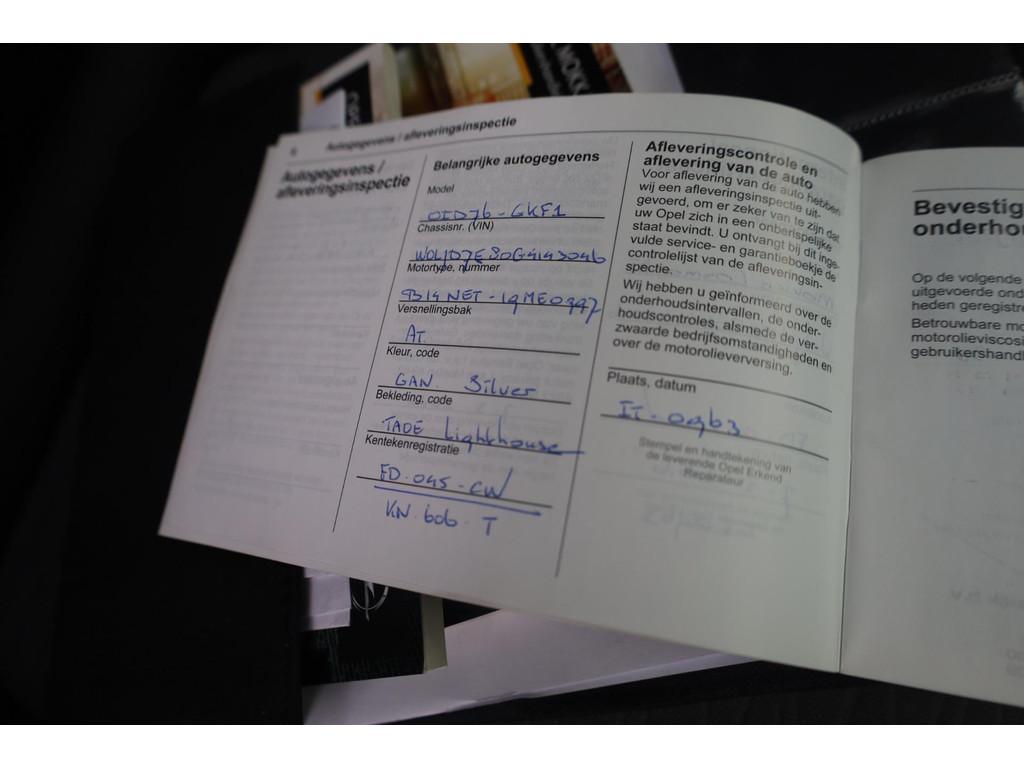 MOKK
6 Autogegevens / afleveringsinspectie
Autogegevens /
afleveringsinspectie
Belangrijke autogegevens
Model
OJD76-GKF1
Chassisnr. (VIN)
Motortype, nummer
Versnellingsbak
AT
Kleur, code
GAN. Silver
Bekleding, code
TADE Lighthouse
Kentekenregistratie
FD-045-CW
KN-606-T
Afleveringscontrole en
aflevering van de auto
Voor aflevering van de auto hebben
wij een afleveringsinspectie uit-
gevoerd, om er zeker van te zijn dat
uw Opel zich in een onberispelijke
staat bevindt. U ontvangt bij dit inge-
vulde service- en garantieboekje de
controlelijst van de afleveringsin-
spectie.
Wij hebben u geïnformeerd over de
onderhoudsintervallen, de onder-
houdscontroles, alsmede de ver-
zwaarde bedrijfsomstandigheden en
over de motorolieverversing.
Plaats, datum
Stempel en handtekening van
de leverende Opel Erkend
Reparateur
Bevestig
onderho
Op de volgende
uitgevoerde ond
heden geregistre
Betrouwbare mo
motorolieviscosi
gebruikershandl